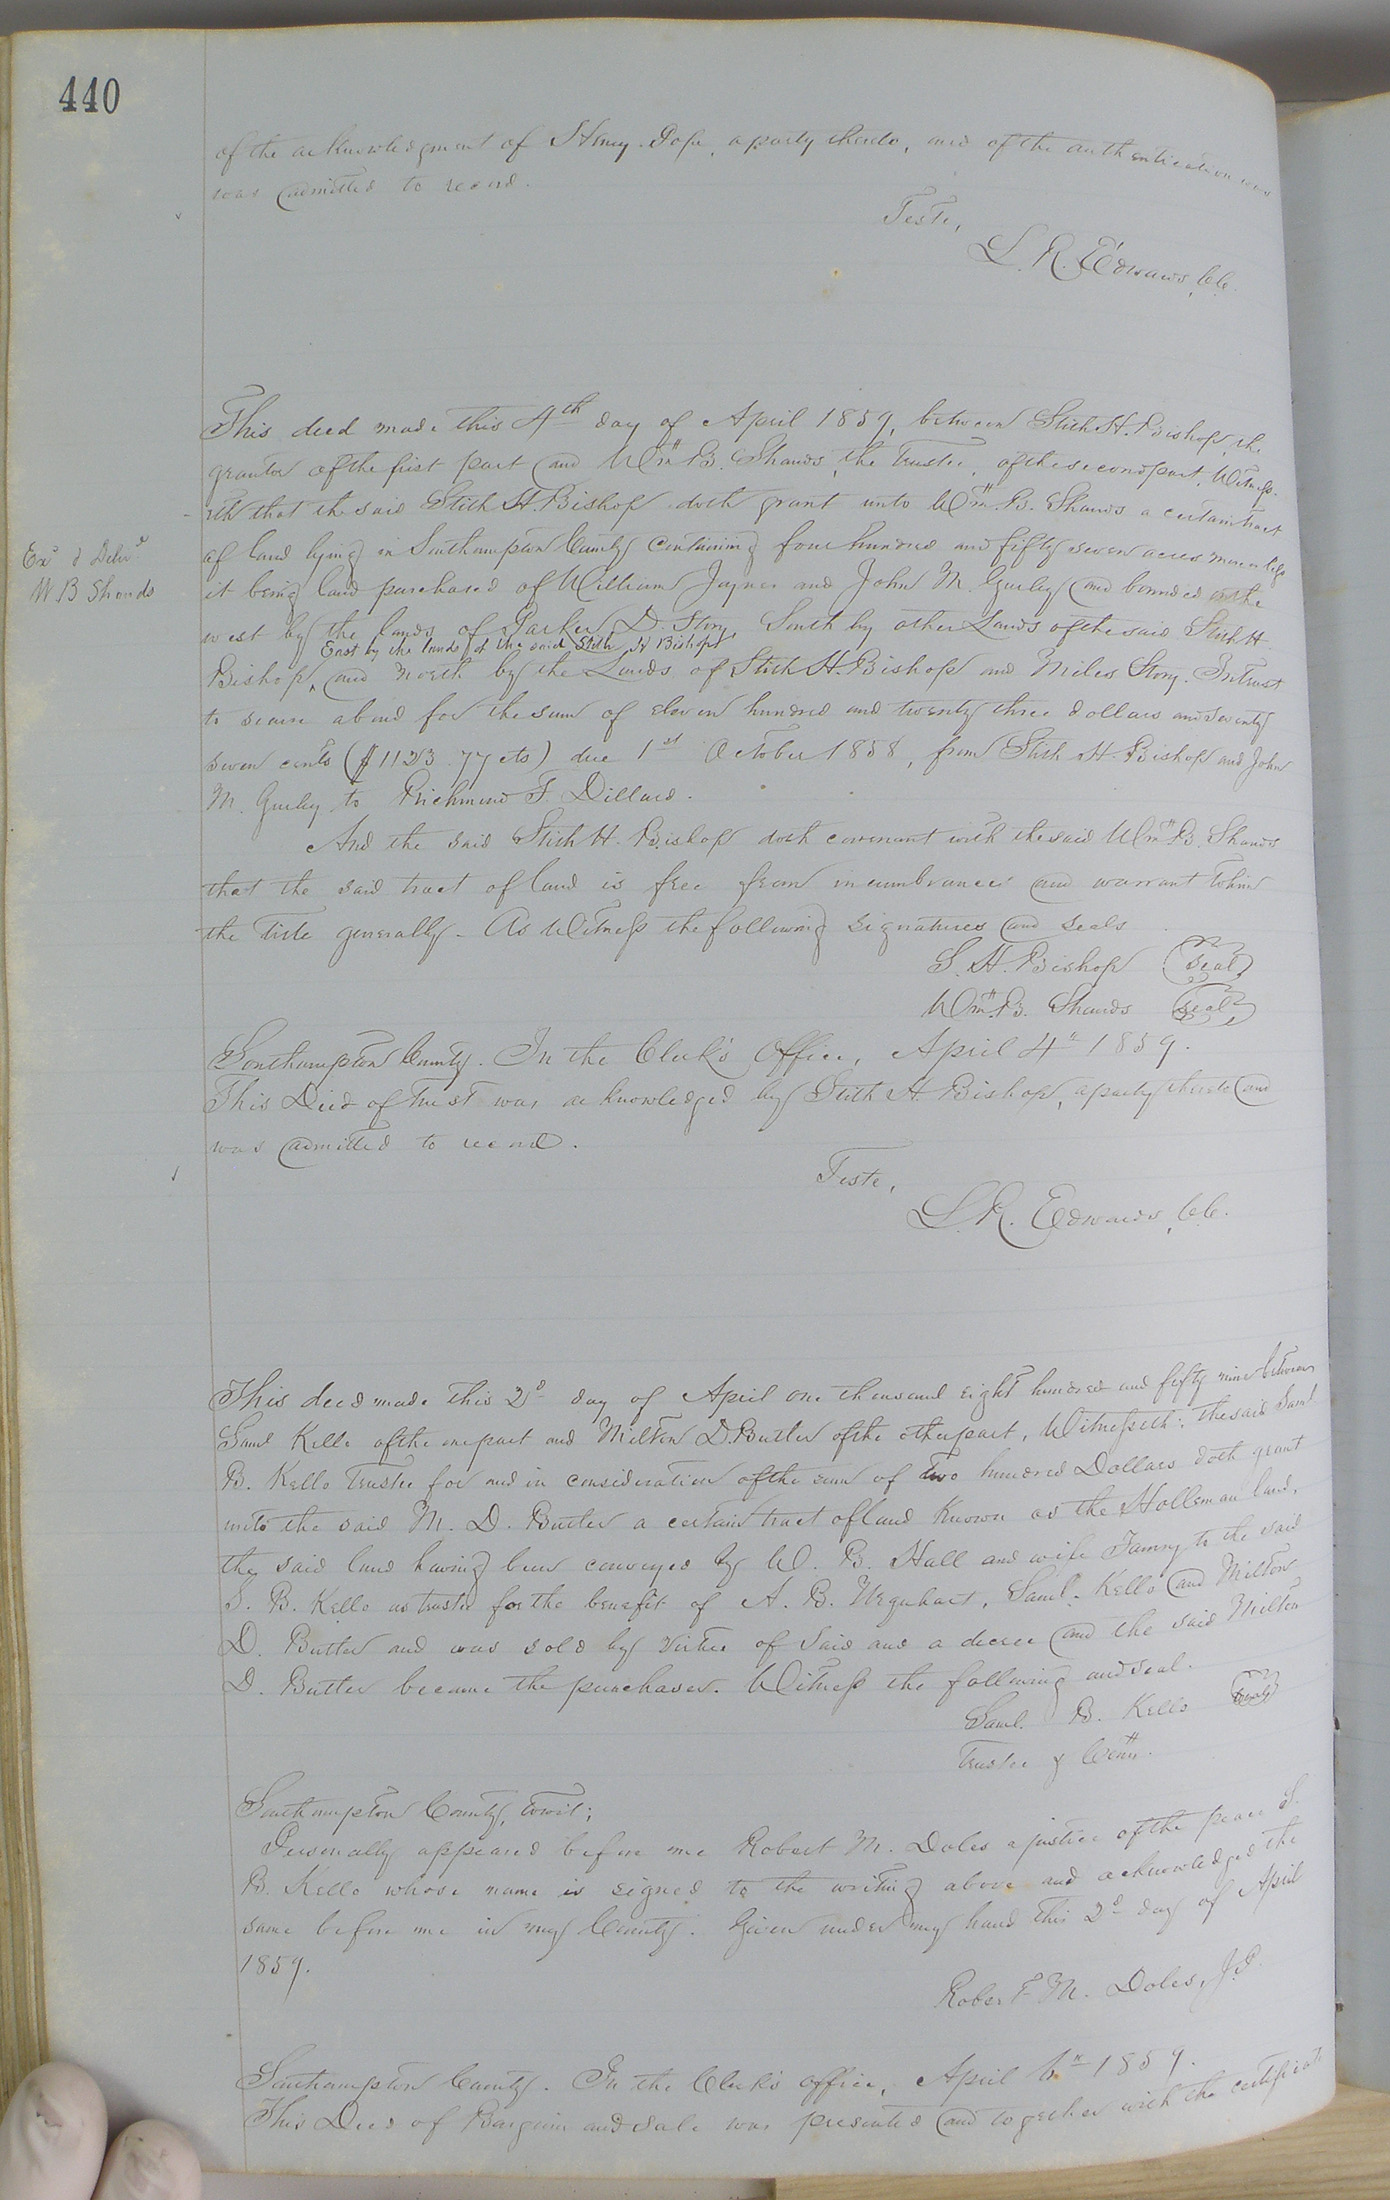 440
of the acknowledgment of Henry Pope, a party thereto, and of the authentication was
was admitted to record.
Teste,
L. R. Edwards, CC.
This deed made this 4th day of April 1859, between Stith H. Bishop, the
grantor of the first part and Wm. B. Shands, the Trustee of the second part, Witness-
eth that the said Stith H. Bishop doth grant unto Wm. B. Shands a certain tract
Exd & Delvd
W B Shands
of land lying in Southampton County containing four hundred and fifty seven acres more or less
it being land purchased of William Joyner and John M. Gurley and bounded on the
west by the lands of Parker D. Story, South by other Lands of the said Stith H.
East by the lands of the said Stith H Bishop
Bishop, and North by the Lands of Stith H. Bishop and Miles Story. In trust
to secure a bond for the sum of eleven hundred and twenty three dollars and seventy
seven cents ($1123.77 cts) due 1st October 1858, from Stith H. Bishop and John
M. Gurley to Richmond F. Dillard.
And the said Stith H. Bishop doth covenant with the said Wm. B. Shands
that the said tract of land is free from incumbrances and warrant to him
the title generally. As Witness the following signatures and seals
S. H. Bishop (seal)
Wm. B. Shands (seal)
Southampton County. In the Clerk's Office, April 4" 1859.
This Deed of Trust was acknowledged by Stith H. Bishop, a party thereto and
was admitted to record.
Teste,
L. R. Edwards, CC.
This deed made this 2d day of April one thousand eight hundred and fifty nine between
Saml Kello of the one part and Milton D. Butler of the other part, Witnesseth: the said Saml
B. Kello Trustee for and in consideration of the sum of two hundred Dollars doth grant
unto the said M. D. Butler a certain tract of land known as the Holleman land,
the said land having been conveyed by W. B. Hall and wife to the said
S. B. Kello as trustee for the benefit of A. B. Urquhart, Saml. Kello and Milton
D. Butler and was sold by virtue of said and a decree and the said Milton
D. Butler became the purchaser. Witness the following and seal.
Saml. B. Kello (seal)
Trustee & Comr.
Southampton County, towit;
Personally appeared before me Robert M. Doles a justice of the peace S.
B. Kello whose name is signed to the writing above and acknowledged the
same before me in my County. Given under my hand this 2d day of April
1859.
Robert M. Doles, J.P.
Southampton County. In the Clerk's office, April 6" 1859.
This Deed of Bargain and sale was presented and together with the certificate